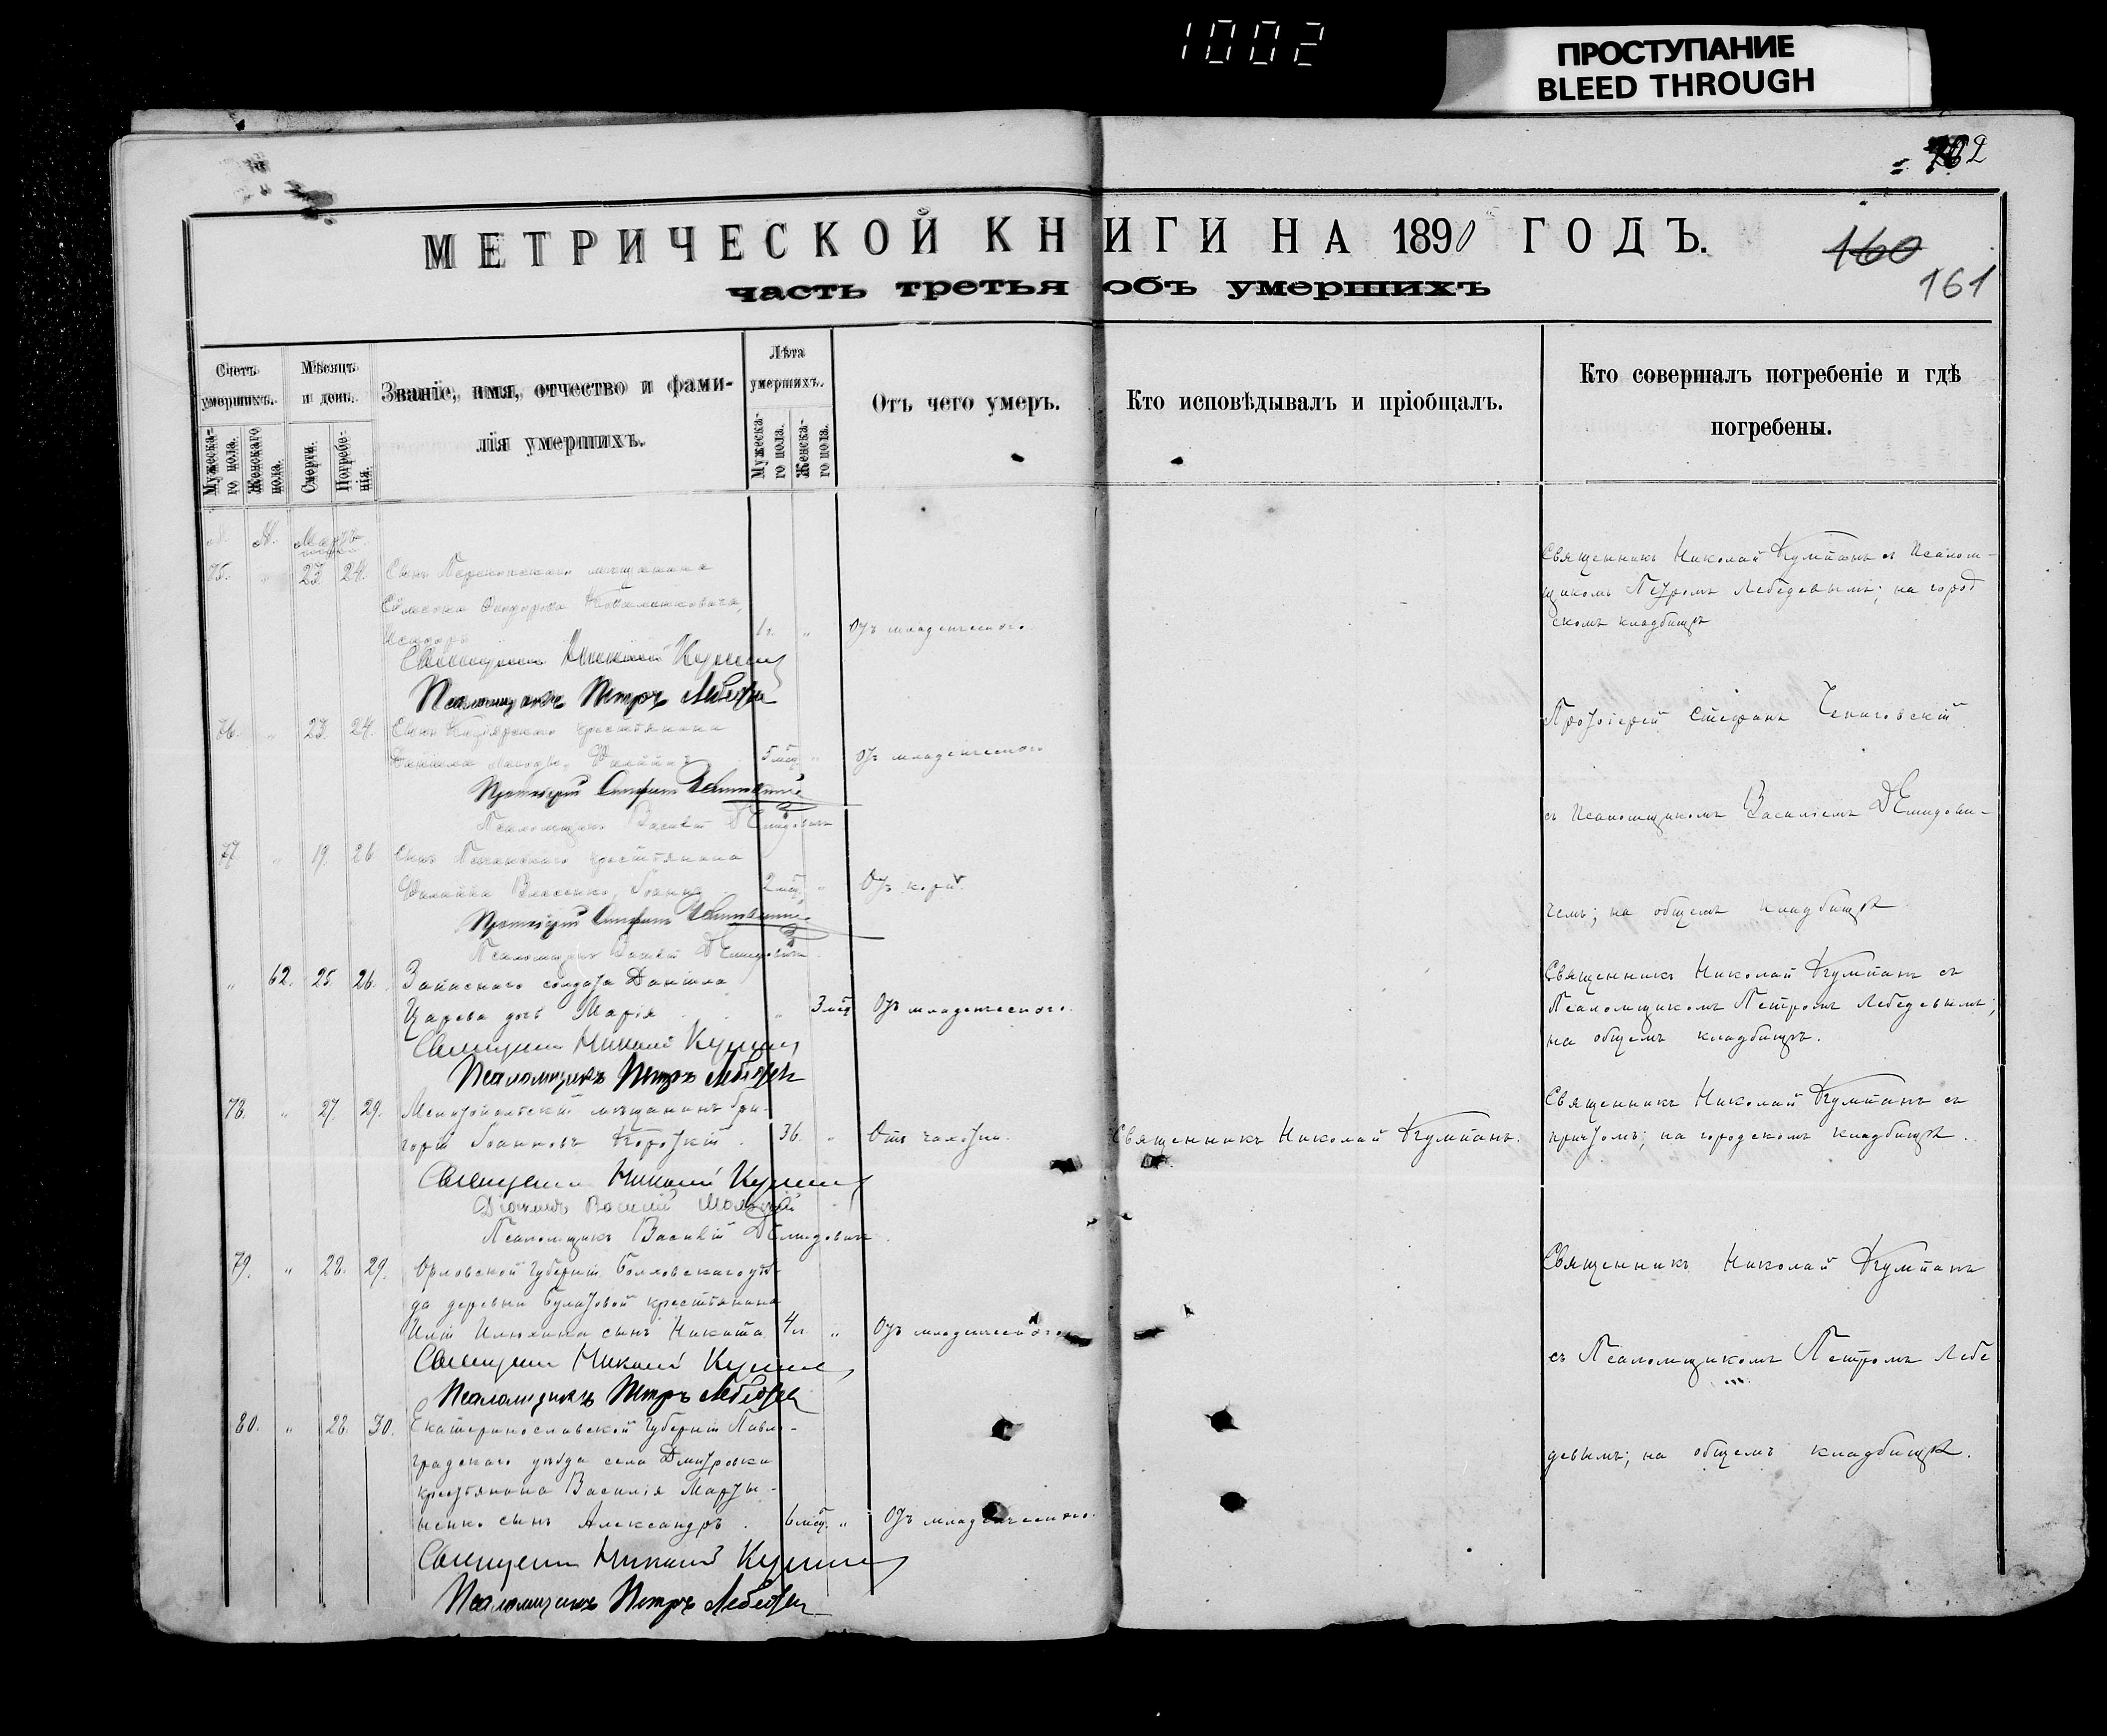 1002
ПРОСТУПАНИЕ
BLEED THROUGH
МЕТРИЧЕСКОЙ КНИГИ НА 1890 ГОДЪ.
160
161
часть третья объ умершихъ
Счетъ умершихъ.
Мѣсяцъ и день.
Званіе, имя, отчество и фамилія умершихъ.
Лѣта умершихъ.
Отъ чего умеръ.
Кто исповѣдывалъ и пріобщалъ.
Кто совершалъ погребеніе и гдѣ погребены.
Мужескаго пола.
Женскаго пола.
Смерти.
Погребенія.
Мужескаго пола.
Женскаго пола.
М. Мартъ.
75. 23. 24. Сынъ мѣщанина
1 г. „ Отъ младенческаго
Священникъ Николай Кумпанъ съ Псалом-
щикомъ Петромъ Лебедевымъ; на город
скомъ кладбищѣ
Священникъ Николай Кумпанъ
Псаломщикъ Петръ Лебедевъ
76. „ 23. 24. Сынъ крестьянина
5 мѣс. „ Отъ младенческаго
Протоіерей Стефанъ
Псаломщикъ Василій Демидовичъ
съ Псаломщикомъ Василіемъ Демидови-
чемъ; на общемъ кладбищѣ
77 „ 19. 26 Сынъ крестьянина
Власенко, Іоаннъ 2 мѣс. „ Отъ кори.
Протоіерей Стефанъ
Псаломщикъ Василій Демидовичъ
„ 62. 25. 26. Запаснаго солдата Даніила
Царева дочь Марія „ 3 мѣс. Отъ младенческаго.
Священникъ Николай Кумпанъ съ
Псаломщикомъ Петромъ Лебедевымъ;
на общемъ кладбищѣ.
Священникъ Николай Кумпанъ
Псаломщикъ Петръ Лебедевъ
78. „ 27. 29. Мелитопольскій мѣщанинъ Гри-
горій Іоанновъ Короткій . 36. „ Отъ чахотки.
Священникъ Николай Кумпанъ.
Священникъ Николай Кумпанъ съ
причтомъ; на городскомъ кладбищѣ.
Священникъ Николай Кумпанъ
Діаконъ Василій
Псаломщикъ Василій Демидовичъ
79. „ 28. 29. Орловской губерніи Болховскаго уѣз-
да деревни Булатовой крестьянина
Иліи Илюхина сынъ Никита 4 г. „ Отъ младенческаго
Священникъ Николай Кумпанъ
съ Псаломщикомъ Петромъ Лебе
девымъ; на общемъ кладбищѣ.
Священникъ Николай Кумпанъ
Псаломщикъ Петръ Лебедевъ
80. „ 28. 30. Екатеринославской губерніи Павло-
градскаго уѣзда села Дмитровки
крестьянина Василія Марты-
ненко сынъ Александръ . 6 мѣс. „ Отъ младенческаго.
Священникъ Николай Кумпанъ
Псаломщикъ Петръ Лебедевъ